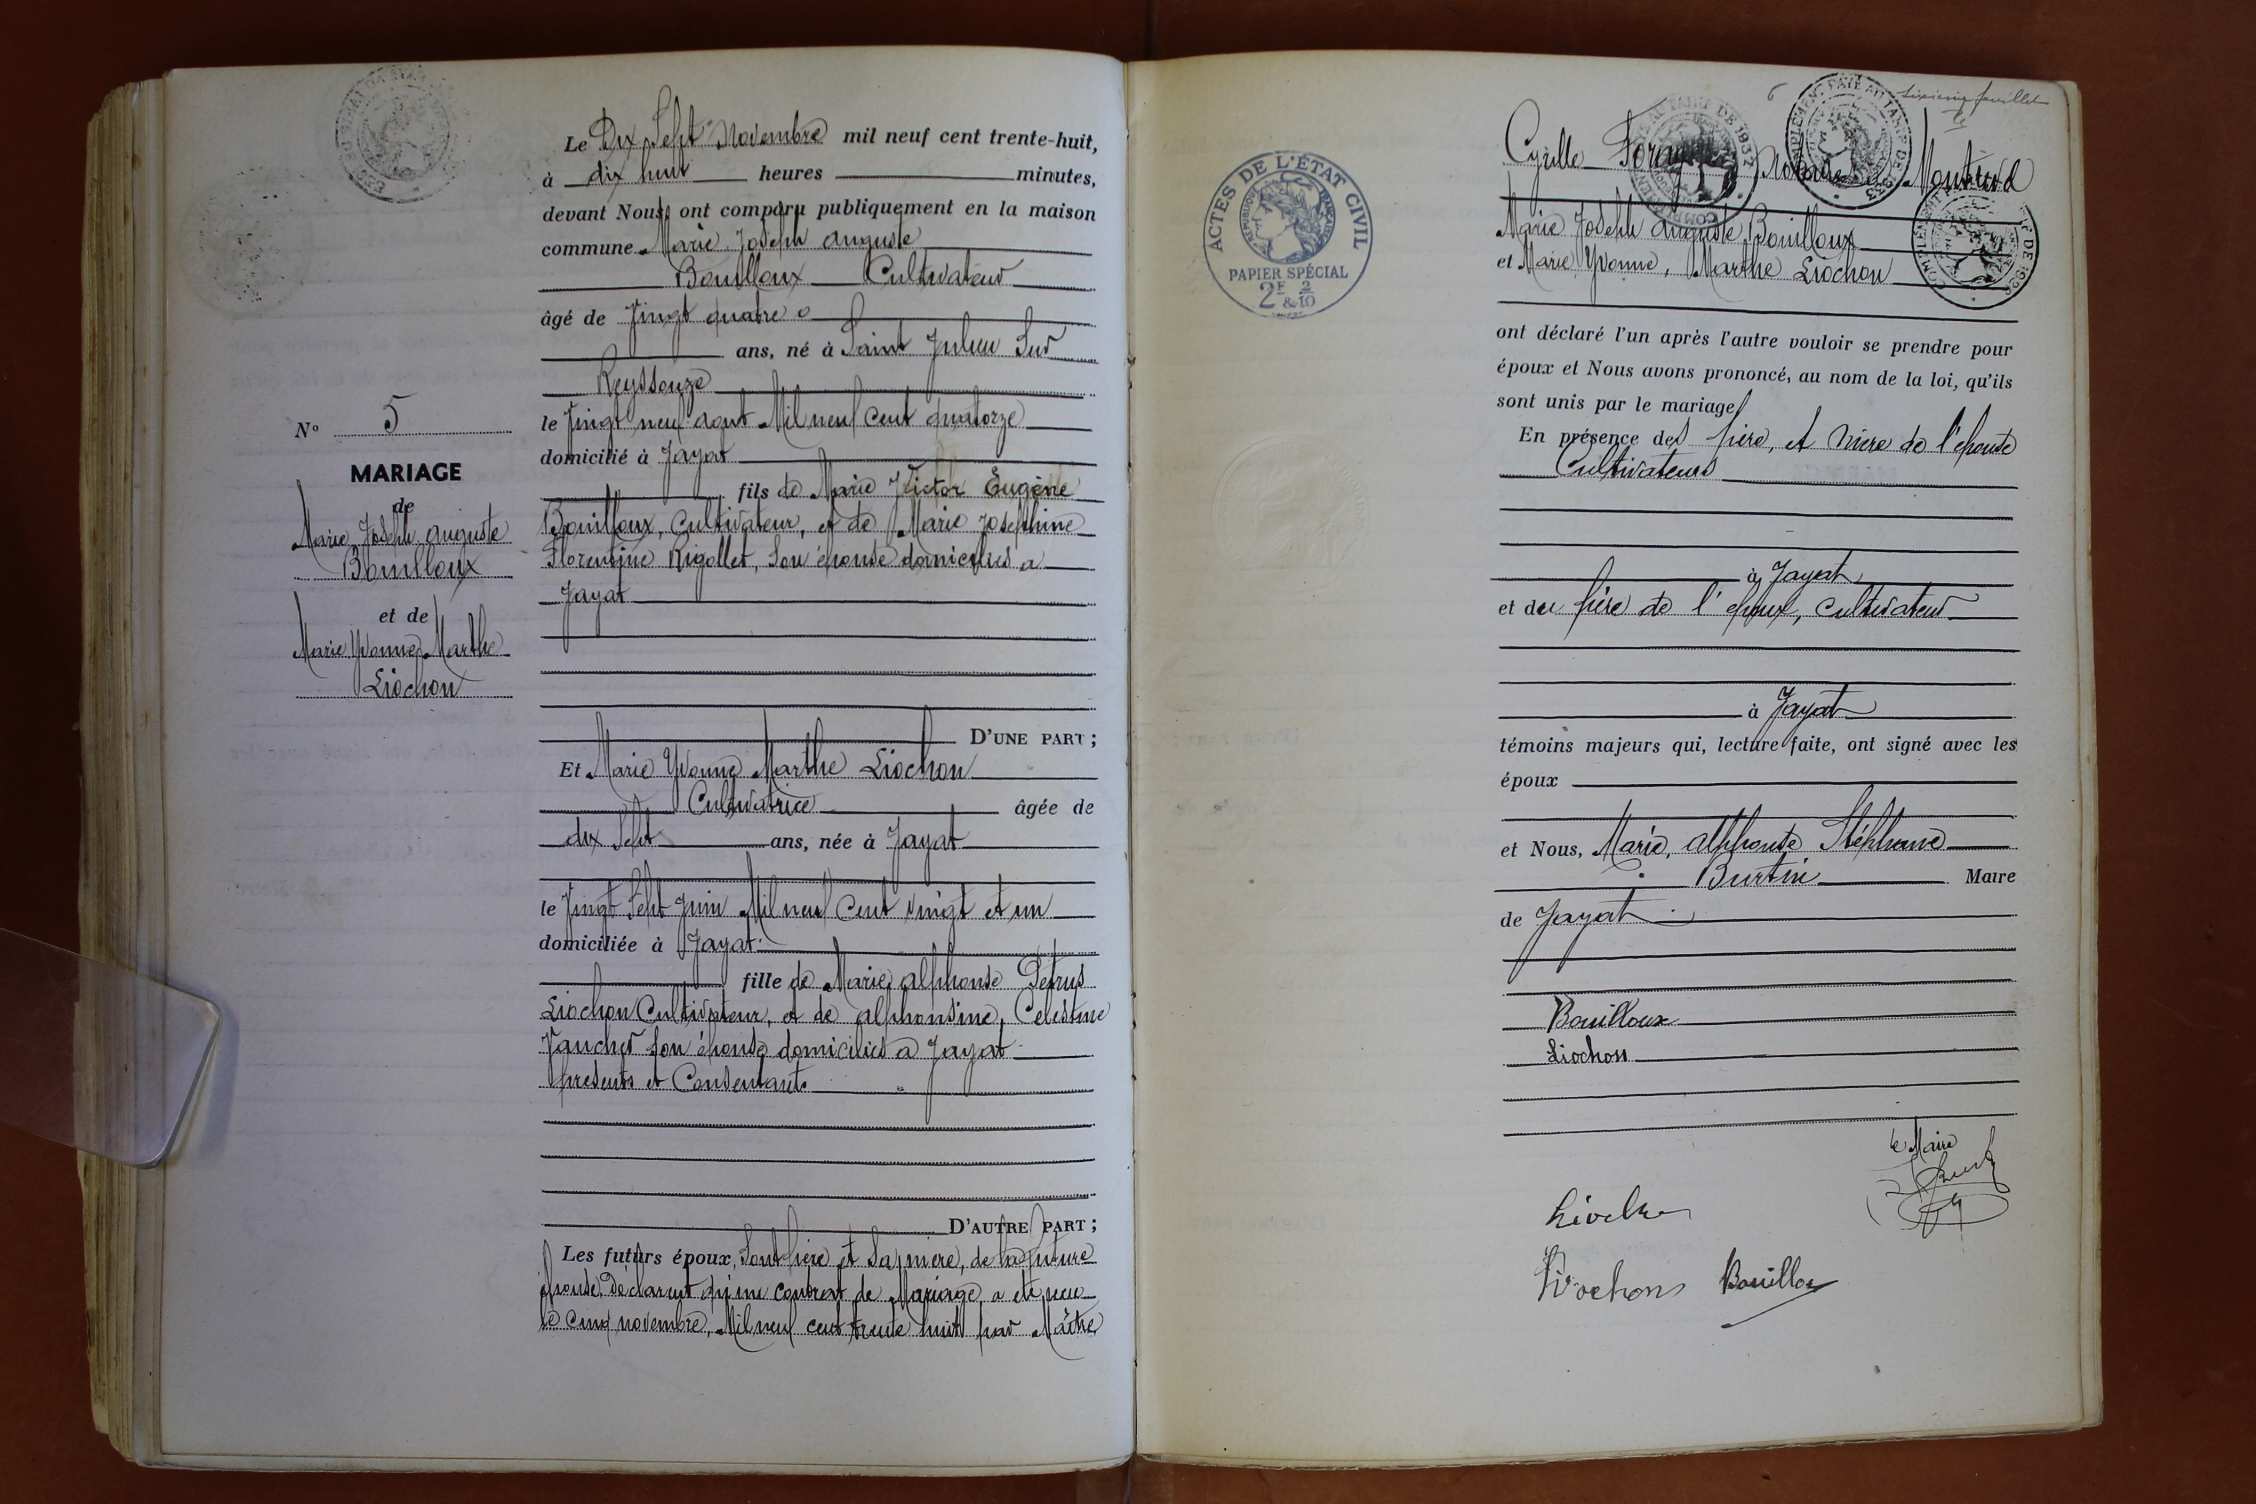 Le Dix Sept Novembre mil neuf cent trente-huit,
à dix huit heures minutes,
devant Nous ont comparu publiquement en la maison
commune Marie Joseph Auguste
Bouilloux Cultivateur
âgé de Vingt quatre
ans, né à Saint Julien Sur
Reyssouze
le Vingt neuf août Mil neuf Cent quatorze
domicilié à Jayat
fils de Marie Victor Eugène
Bouilloux, Cultivateur, et de Marie Josephine
Florentine Rigollet, Son épouse domiciliés à
Jayat
D'UNE PART ;
Et Marie Yvonne Marthe Liochon
Cultivatrice âgée de
dix Sept ans, née à Jayat
le Vingt Sept Juin Mil neuf Cent vingt et un
domiciliée à Jayat
fille de Marie Alphonse Petrus
Liochon Cultivateur, et de Alphonsine, Celestine
Vaucher Son épouse domiciliés à Jayat
présents et Consentants
D'AUTRE PART ;
Les futurs époux, Sont père et Sa mère, de la future
épouse, Déclarent qu'un Contrat de Mariage, a été reçu
le Cinq novembre, Mil neuf cent trente huit par Maître
N° 5
MARIAGE
de
Marie Joseph Auguste
Bouilloux
et de
Marie Yvonne Marthe
Liochon
ACTES DE L'ÉTAT CIVIL
RÉPUBLIQUE FRANÇAISE
PAPIER SPÉCIAL
2F & 2/10
6
sixième feuillet
Cyrille Notaire à Montrevel
Marie Joseph Auguste Bouilloux
et Marie Yvonne, Marthe Liochon
ont déclaré l'un après l'autre vouloir se prendre pour
époux et Nous avons prononcé, au nom de la loi, qu'ils
sont unis par le mariage
En présence des père, et mère de l'épouse
Cultivateurs
à Jayat
et du père de l'époux, cultivateur
à Jayat
témoins majeurs qui, lecture faite, ont signé avec les
époux
et Nous, Marie, Alphonse Stéphane
Burtin Maire
de Jayat
Bouilloux
Liochon
le Maire
Liochon
Bouilloux